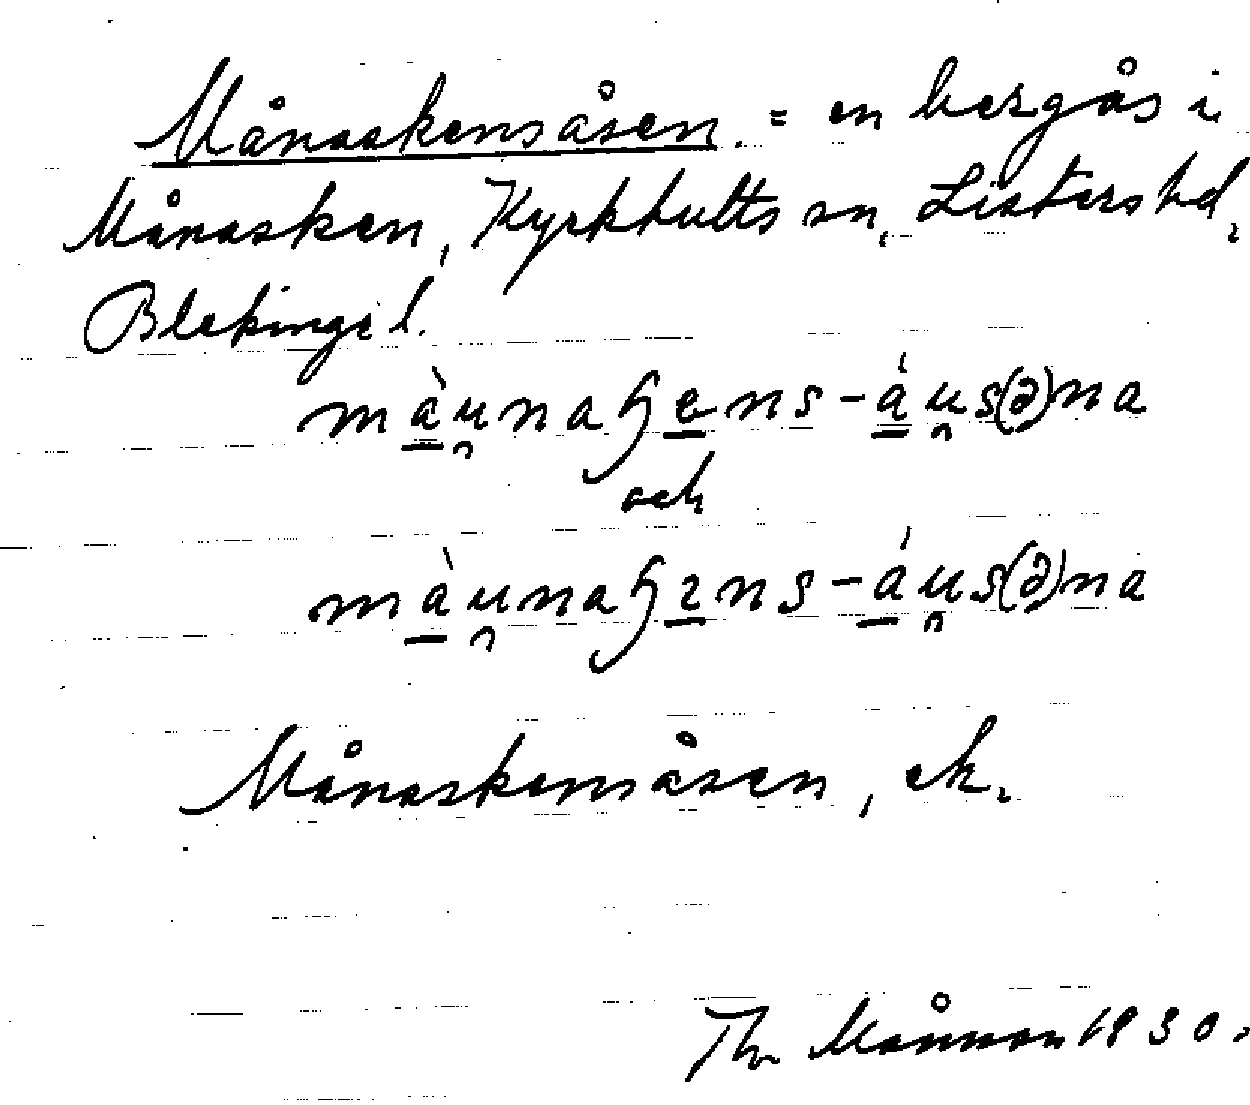 Månaskensåsen. = en bergås i
Månasken, Kyrkhults sn, Listers hd,
Blekinge l.
màu̯naɧens-áu̯s(ə)na
och
màu̯naɧɪns-áu̯s(ə)na
Månaskensåsen, ek.
1930.